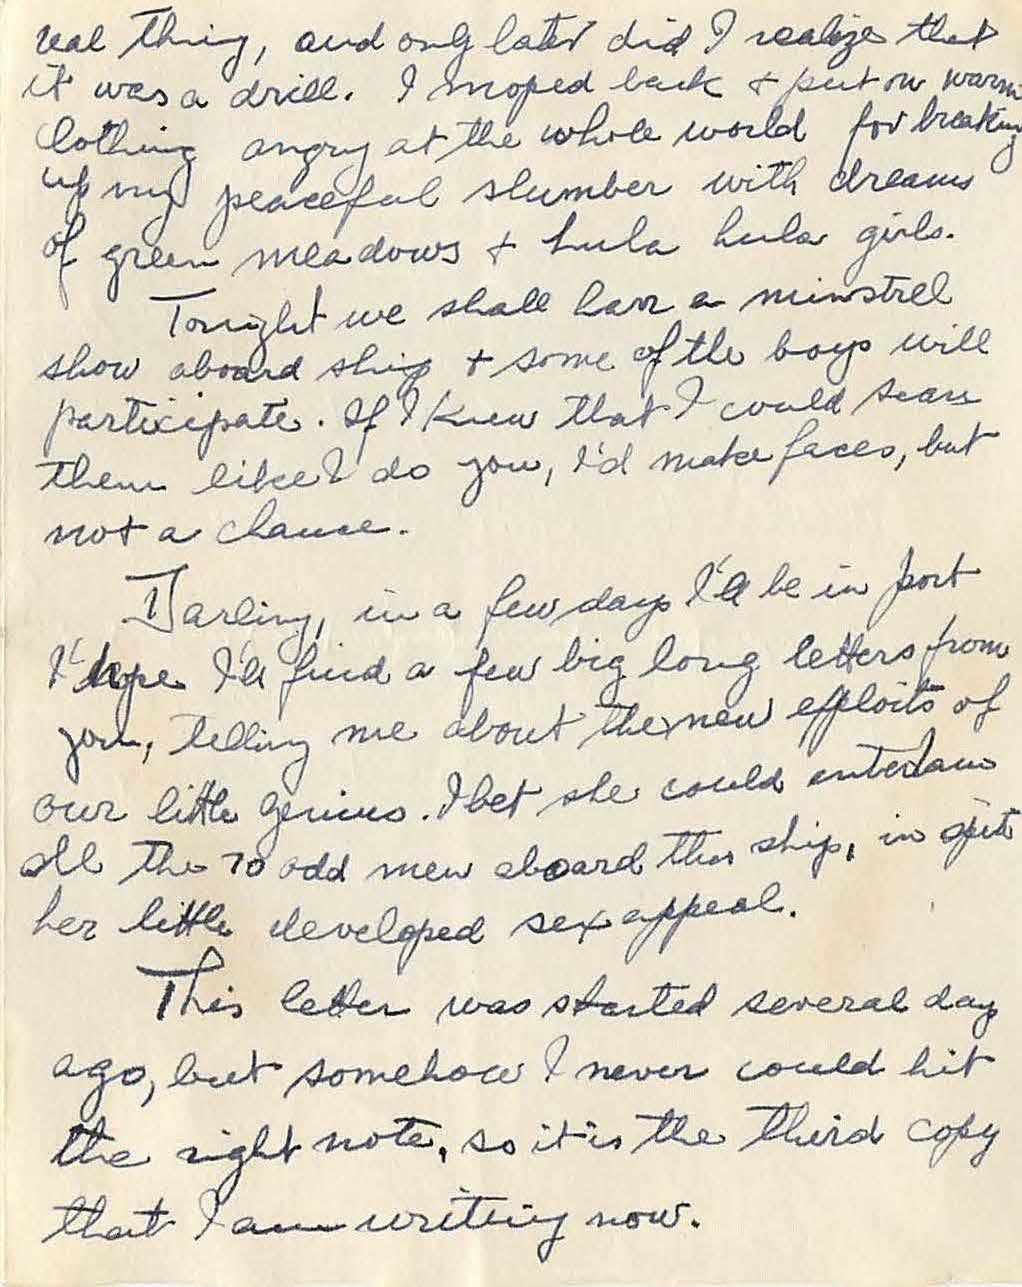 real thing, and only later did I realize that
it was a drill. I moped back + put on warm
clothing angry at the whole world for breaking
up my peaceful slumber with dreams
of green meadows + hula hula girls.
Tonight we shall have a minstrel
show aboard ship + some of the boys will
participate. If I knew that I could scare
them like I do you, I'd make faces, but
not a chance.
Darling, in a few days I'll be in port
I hope I'll find a few big long letters from
you, telling me about the new exploits of
our little genius. I bet she could entertain
all the 70 odd men aboard this ship, in spite
her little developed sex appeal.
This letter was started several day
ago, but somehow I never could hit
the right note, so it is the third copy
that I am writing now.